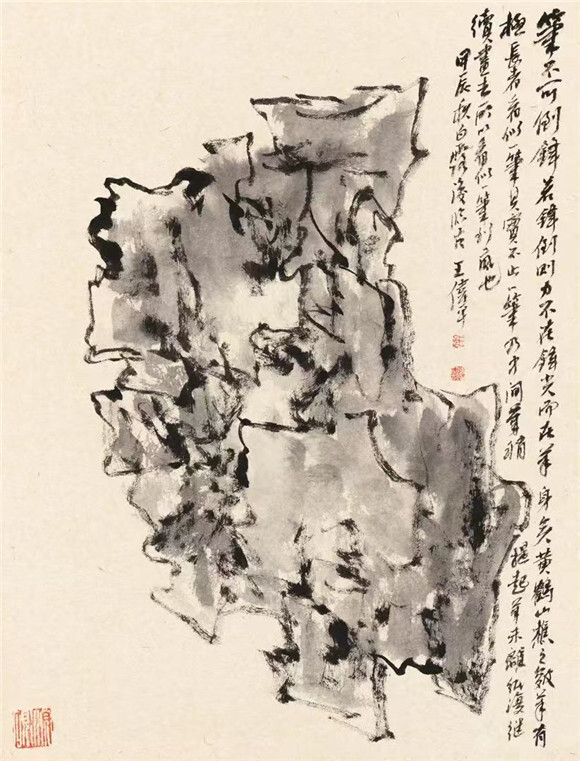 筆不可倒鋒若鋒倒則力不在鋒尖而在筆身矣黃鶴山樵之皴筆有
極長者看似一筆其實不止一筆乃中間筆稍提起筆未離紙復继
續畫去所以看似一筆到底也
甲辰秋白露後临古王偉平